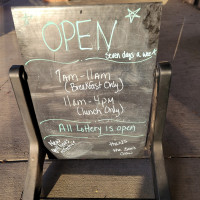 OPEN
Seven days a week
7am-11am
(Breakfast Only)
11am-4pm
(Lunch Only)
All Lottery is open
Thanks